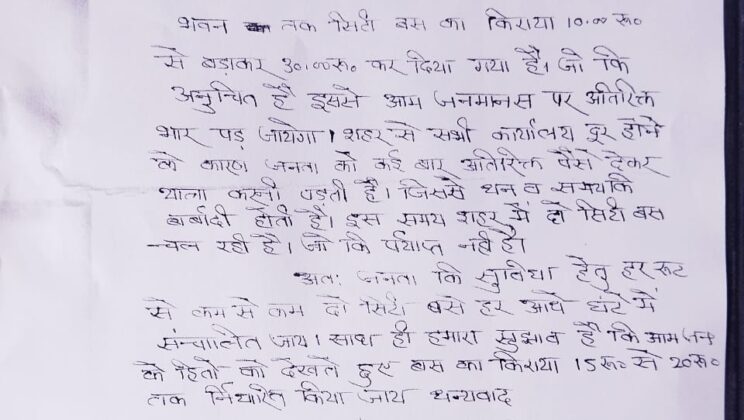 भवन तक सिटी बस का किराया 10.00 रू०
से बड़ाकर 30.00रू० कर दिया गया है। जो कि
अनुचित है इससे आम जनमानस पर अतिरिक्त
भार पड़ जायेगा। शहर से सभी कार्यालय दूर होने
के कारण जनता को कई बार अतिरिक्त पैसे देकर
यात्रा करनी पड़ती है। जिससे धन व समयकि
बार्बादी होती है। इस समय शहर में दो सिटी बस
चल रही है। जो कि पर्याप्त नही है।
अतः जनता कि सुविधा हेतु हर रूट
से कम से कम दो सिटी बसे हर आधे घंटे में
संचालित जाय। साथ ही हमारा सुझाव है कि आम जन
के हितो को देखते हुए बस का किराया 15रू० से 20रू०
तक निर्धारित किया जाय धन्यवाद